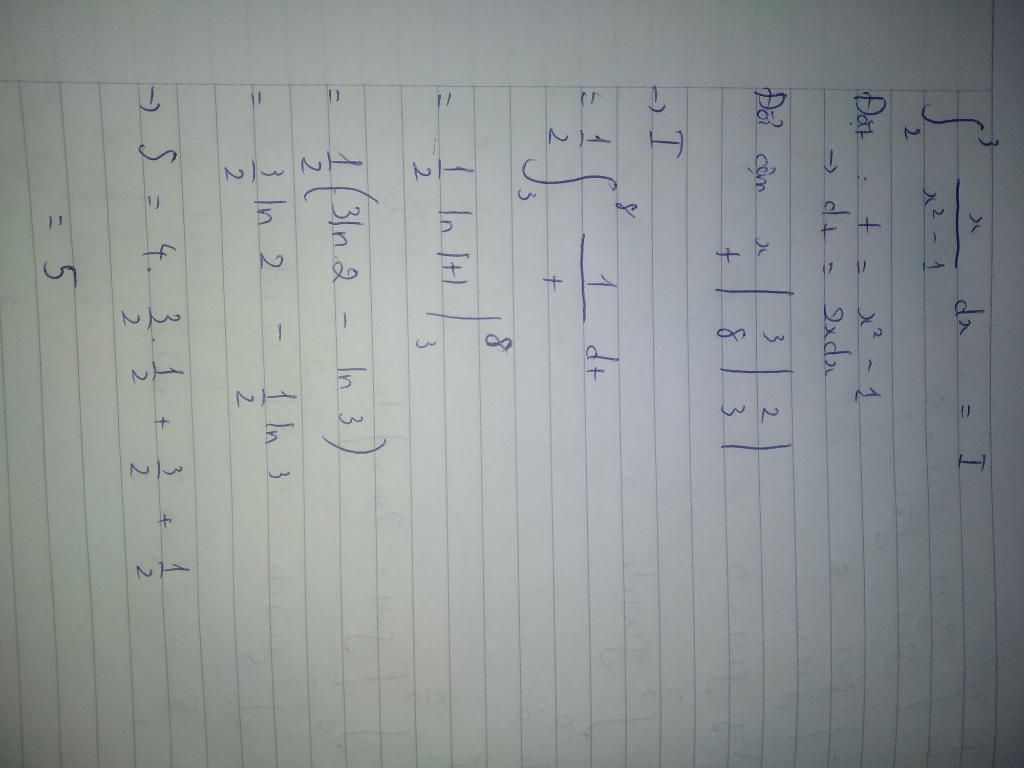 ∫₂³ x/(x² - 1) dx = I
Đặt : t = x² - 1
→ dt = 2xdx
Đổi cận x | 3 | 2 |
t | 8 | 3 |
→ I
= 1/2 ∫₃⁸ 1/t dt
= 1/2 ln |t| |₃⁸
= 1/2 (3ln 2 - ln 3)
= 3/2 ln 2 - 1/2 ln 3
→ S = 4. 3/2 . 1/2 + 3/2 + 1/2
= 5